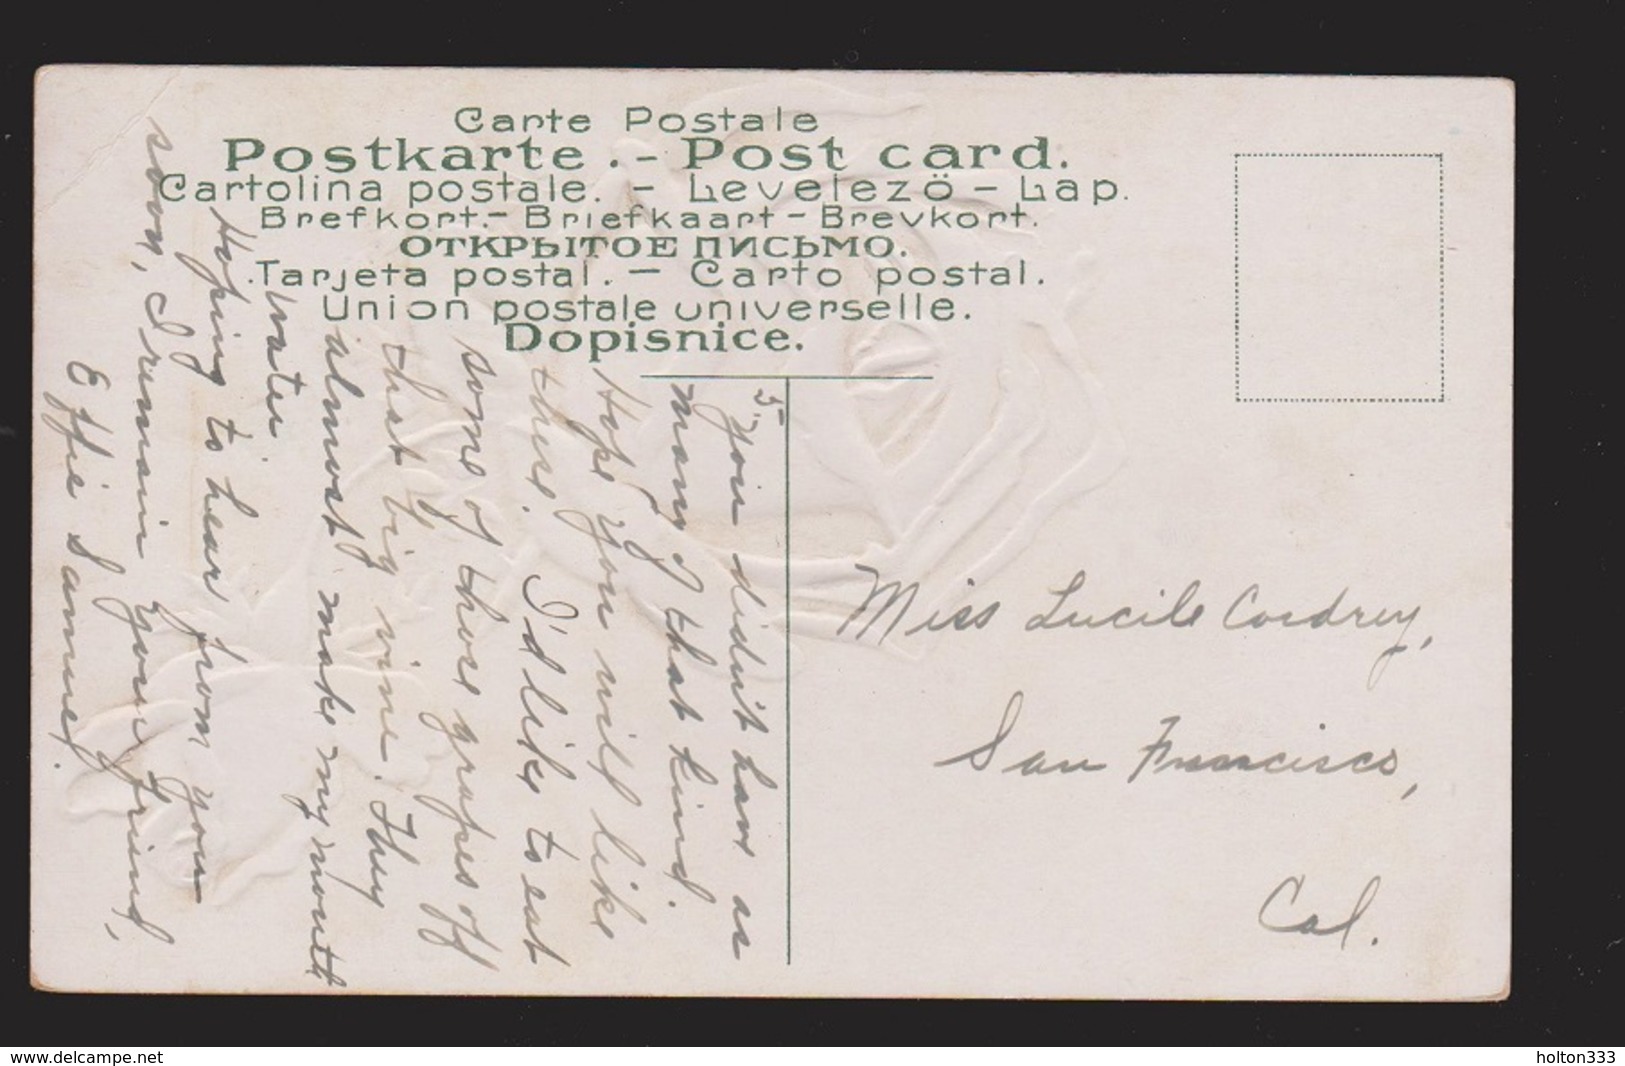 Carte Postale
Postkarte . - Post card.
Cartolina postale. - Levelezö - Lap.
Brefkort. - Briefkaart - Brevkort.
ОТКРЫТОЕ ПИСЬМО.
Tarjeta postal. - Carto postal.
Union postale universelle.
Dopisnice.
5.
you didn't have as
many of that kind.
Hope you will like
these. I'd like to eat
some of those grapes off
that big vine. They
almost make my mouth
water.
Hoping to hear from you
soon, I remain your friend,
Effie Sammel.
Miss Lucile Cordrey,
San Francisco,
Cal.
www.delcampe.net
holton333